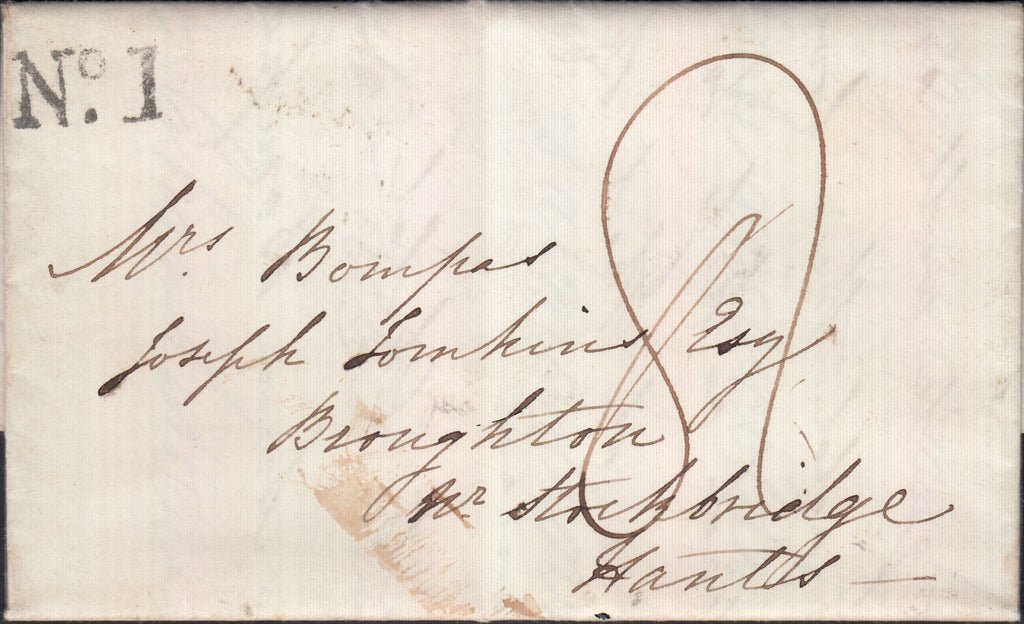 No. 1
Mrs. Bompas
Joseph Tomkins Esq
Broughton
Nr Stockbridge
Hants
8